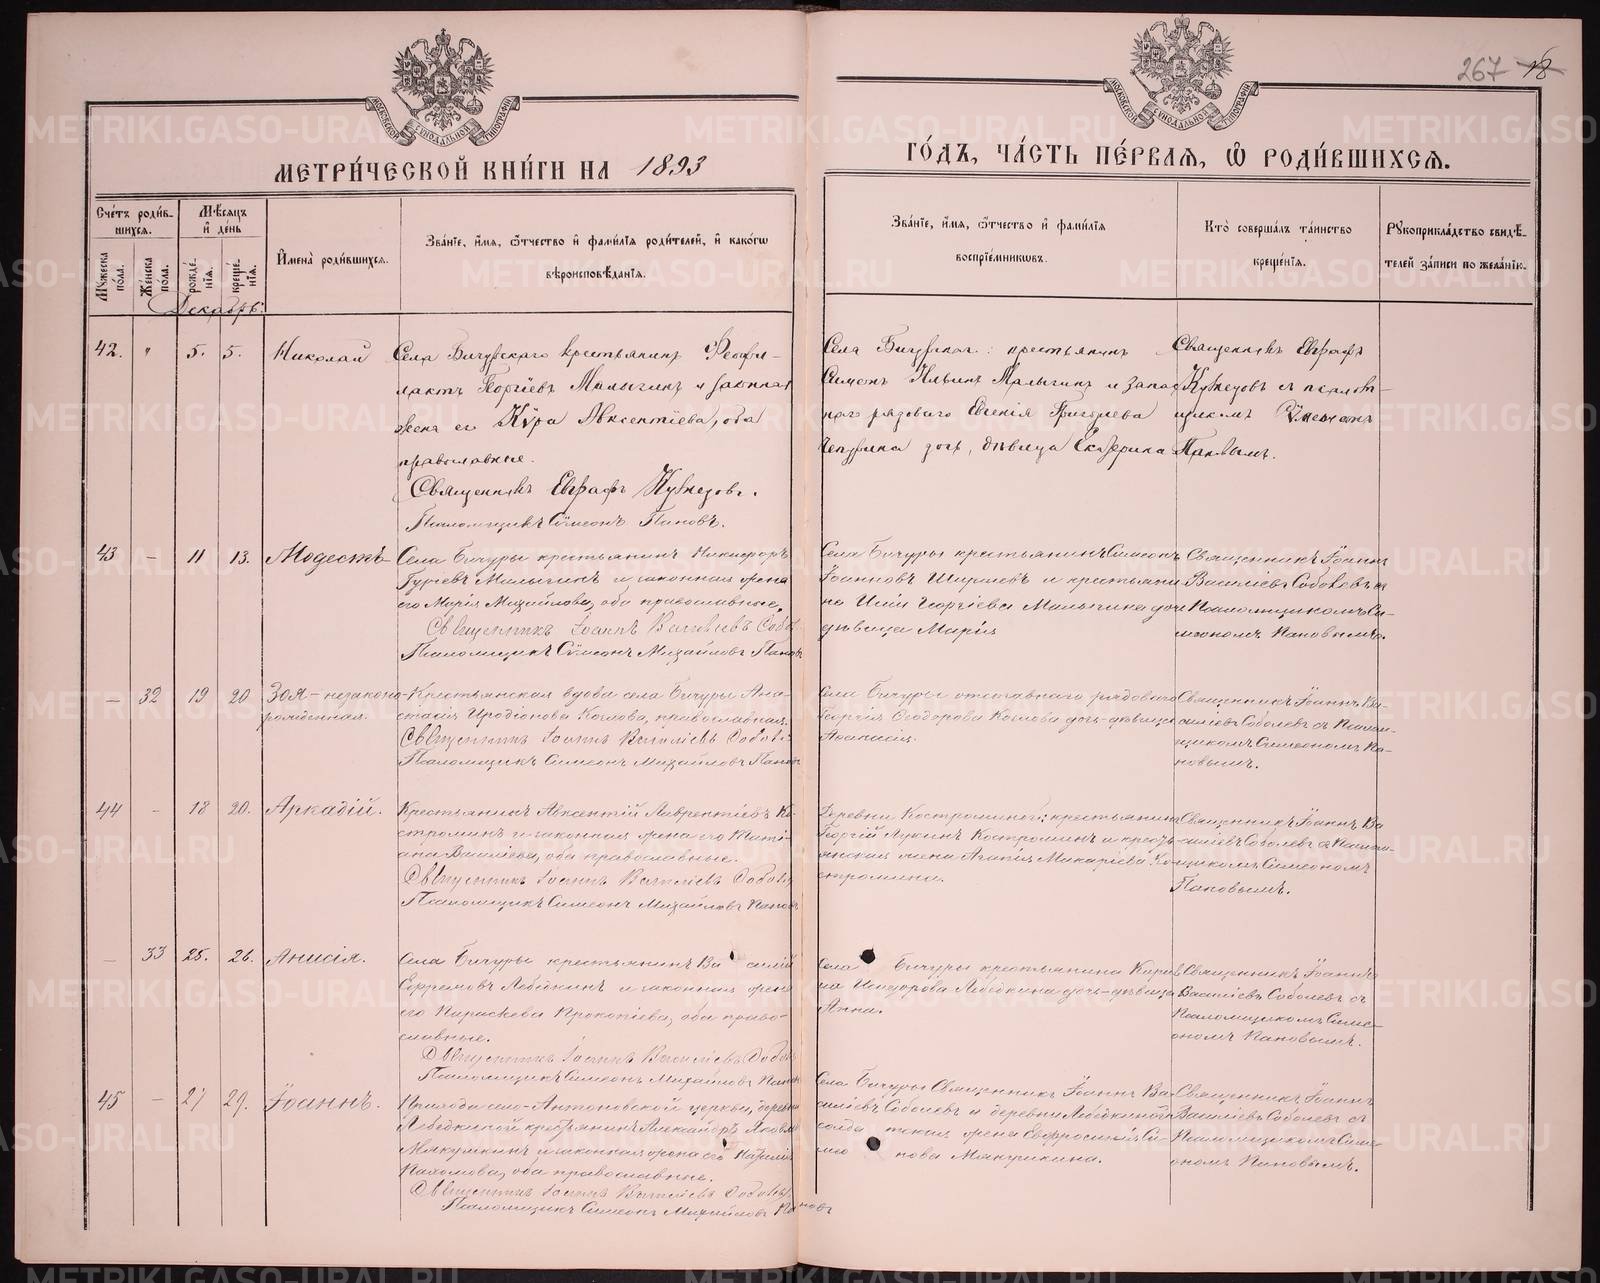 267 18
МЕТРИ́ЧЕСКОЙ КНИ́ГИ НА 1893
ГО́ДЪ, ЧА́СТЬ ПЕ́РВАЯ, Ѡ РОДИ́ВШИХСЯ.
Счéтъ роди́вшихся.
Мꙋ́жеска по́ла.
Же́нска по́ла.
Мѣ́сяцъ и҆ де́нь
рожде́нїя.
креще́нїя.
И҆мена̀ роди́вшихся.
Зва́нїе, и҆́мя, ѻ҆́тчество и҆ фами́лїя роди́телей, и҆ како́гѡ вѣроисповѣ́данїя.
Зва́нїе, и҆́мя, ѻ҆́тчество и҆ фами́лїя воспрїе́мникѡвъ.
Кто̀ соверша́лъ та́инство креще́нїя.
Рꙋкоприкла́дство свидѣ́телей за́писи по жела́нїю.
Декабрь:
42. " 5. 5. Николай
Села Бичурскаго крестьянинъ Феофи-
лактъ Георгіевъ Малыгинъ и законная
жена его Кѵра Авксентіева, оба
православные.
Священникъ Евграфъ Кузнецовъ.
Псаломщикъ Сѵмеонъ Пановъ.
Села Бичурскаг.: крестьянинъ
Симеонъ Ильинъ Малыгинъ и запас
наго рядоваго Евгенія Григорьева
дочь, дѣвица Екатерина
Священникъ Евграфъ
Кузнецовъ съ псаломъ-
щикомъ Сѵмеономъ
Пановымъ.
43 — 11 13. Модестъ
Села Бичуры крестьянинъ Никифоръ
Гурьевъ Малыгинъ и законная жена
его Марія Михайлова, оба православные.
Священникъ Іоаннъ Васильевъ Собо
Псаломщикъ Сѵмеонъ Михайловъ Пановъ
Села Бичуры крестьянинъ Симеонъ
Іоанновъ Ширяевъ и крестьяни
на Георгіева Малыгина доч
дѣвица Марія
Священникъ Іоаннъ
Василіевъ Соболевъ съ
Псаломщикомъ Си-
меономъ Пановымъ.
— 32 19 20 Зоя — незаконо-
рожденная.
Крестьянская вдова села Бичуры Ана-
стасія Иродіонова Козлова, православная.
Священникъ Іоаннъ Василіевъ Соболе
Псаломщикъ Симеонъ Михайловъ Панов
Села Бичуры отставнаго рядоваго
Георгія Ѳеодорова Козлова дочь-дѣвица
Священникъ Іоаннъ Ва-
силіевъ Соболевъ съ Псалом-
щикомъ Симеономъ Па-
новымъ.
44 - 18 20. Аркадій.
Крестьянинъ Авксентій Лаврентіевъ Ко
строминъ и законная жена его Тати-
ана Василіева, оба православные.
Священникъ Іоаннъ Василіевъ Соболе
Псаломщикъ Симеонъ Михайловъ Панов
Деревни Костроминой: крестьянинъ
Георгій Лукинъ Костроминъ и кресть
янская жена Агапія Макаріева Ко
стромина.
Священникъ Іоаннъ Ва
силіевъ Соболевъ съ Псалом-
щикомъ Симеономъ
Пановымъ.
— 33 25. 26. Анисія.
Села Бичуры крестьянинъ Василій
Ефремовъ Лебёдкинъ и законная жена
его Параскева Прокопіева, оба право-
славные.
Священникъ Іоаннъ Василіевъ Собол
Псаломщикъ Симеонъ Михайловъ Панов
Села Бичуры крестьянина
Лебёдкина дочь-дѣвица
Анна.
Священникъ Іоаннъ
Василіевъ Соболевъ съ
Псаломщикомъ Симе-
ономъ Пановымъ.
45 — 27 29. Іоаннъ.
Прихода село-Антоновской церкви, деревни
Лебёдкиной крестьянинъ Александръ Яковле
Мякушкинъ и законная жена его
Пахомова, оба православные.
Священникъ Іоаннъ Василіевъ Соболев
Псаломщикъ Симеонъ Михайловъ Пановъ
Села Бичуры Священникъ Іоаннъ Ва
силіевъ Соболевъ и деревни Лебёдкиной
солдатская жена Евфросинія
Священникъ Іоаннъ
Василіевъ Соболевъ съ
Псаломщикомъ Симе-
ономъ Пановымъ.
METRIKI.GASO-URAL.RU